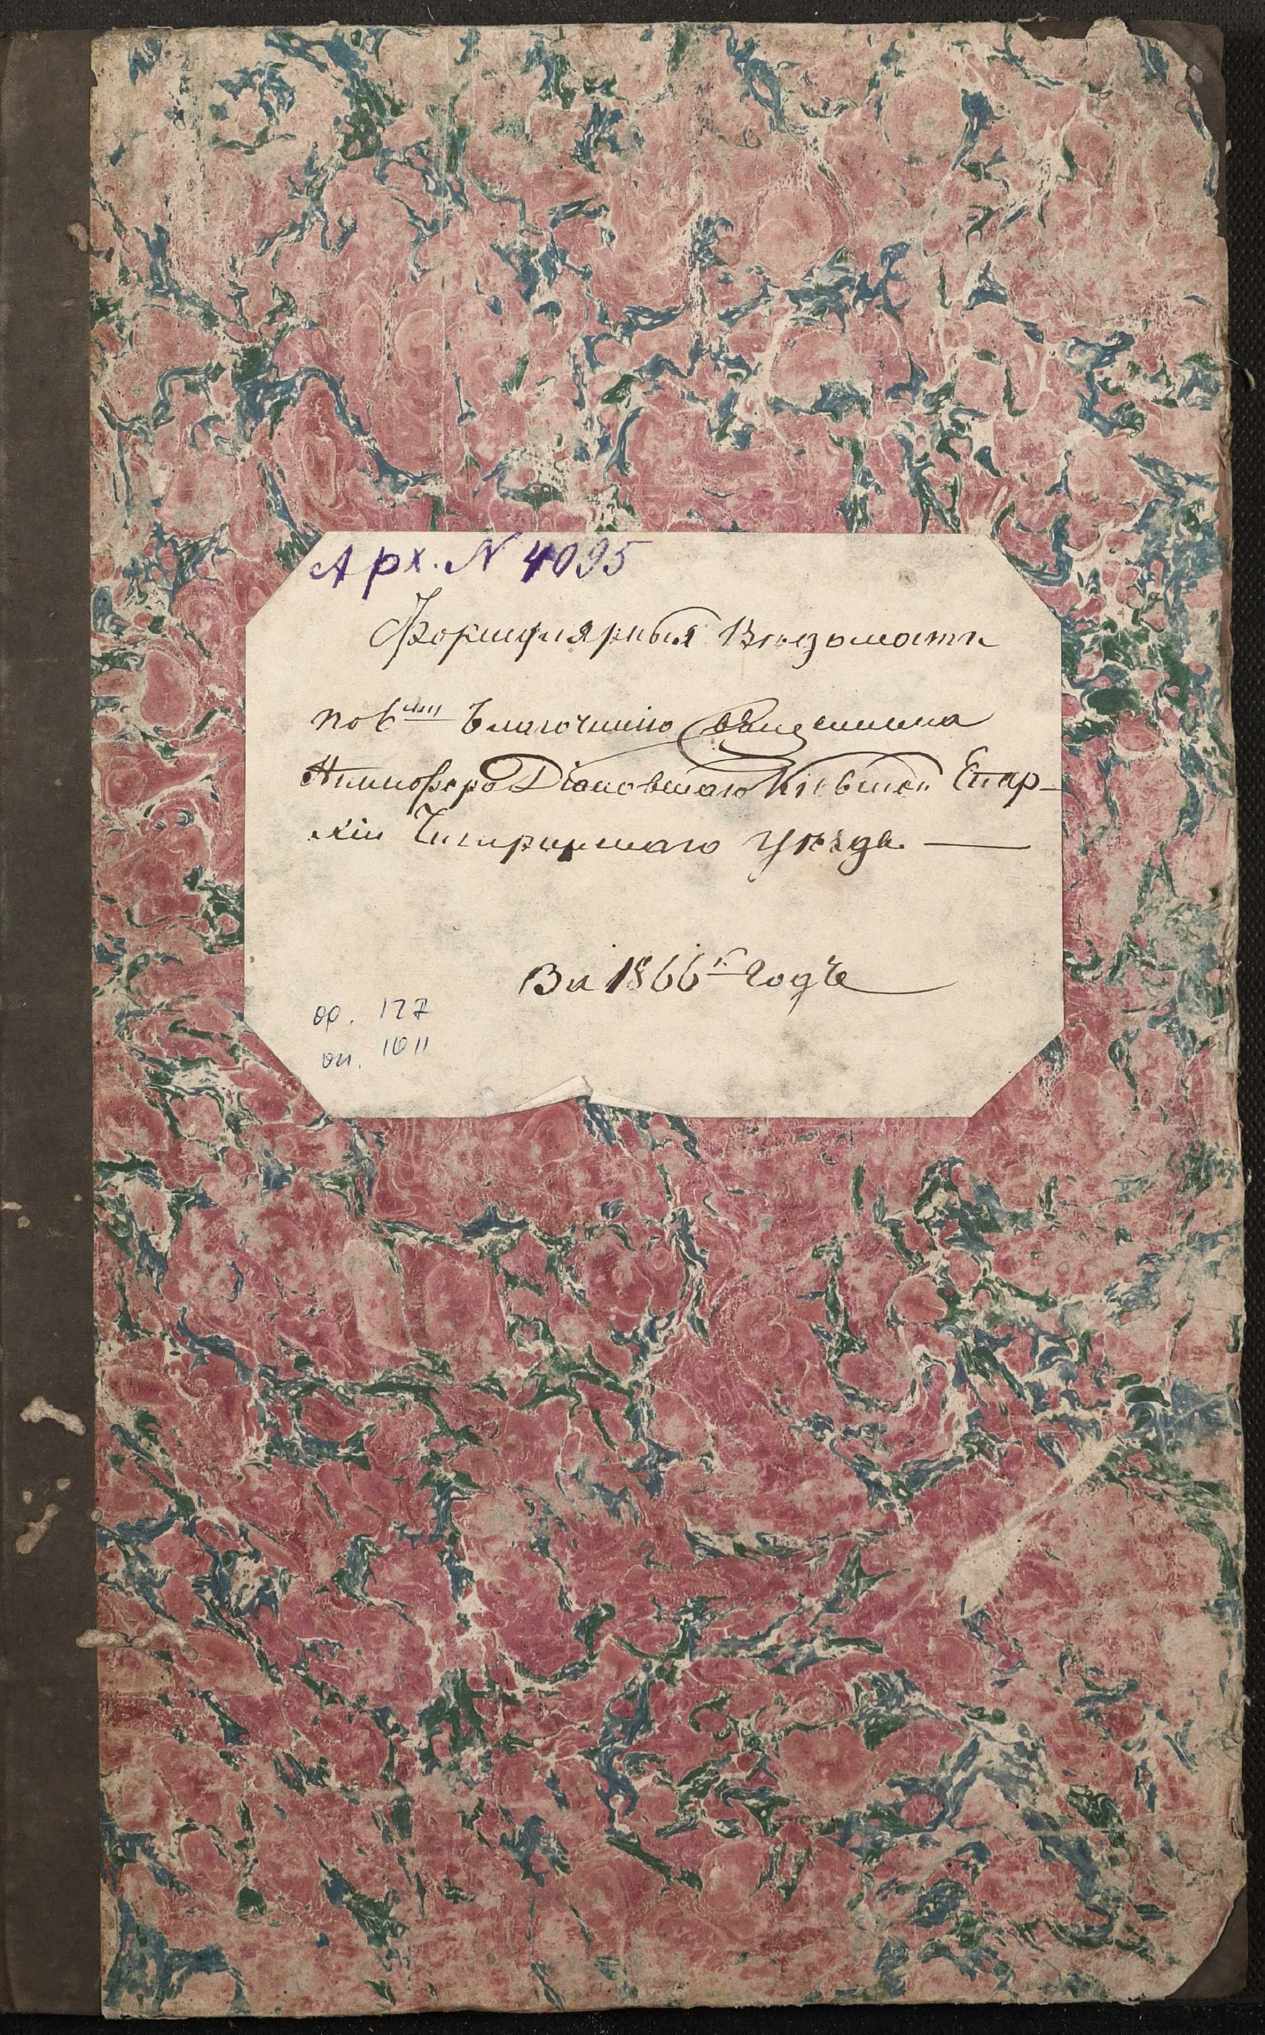 Арх. N 4095
Формулярныя Вѣдомости
по 6му благочинію Священника
Никифора Діаковскаго Кіевской Епар-
хіи Чигиринскаго уѣзда —
За 1866й Годъ
ор. 127
оп. 1011